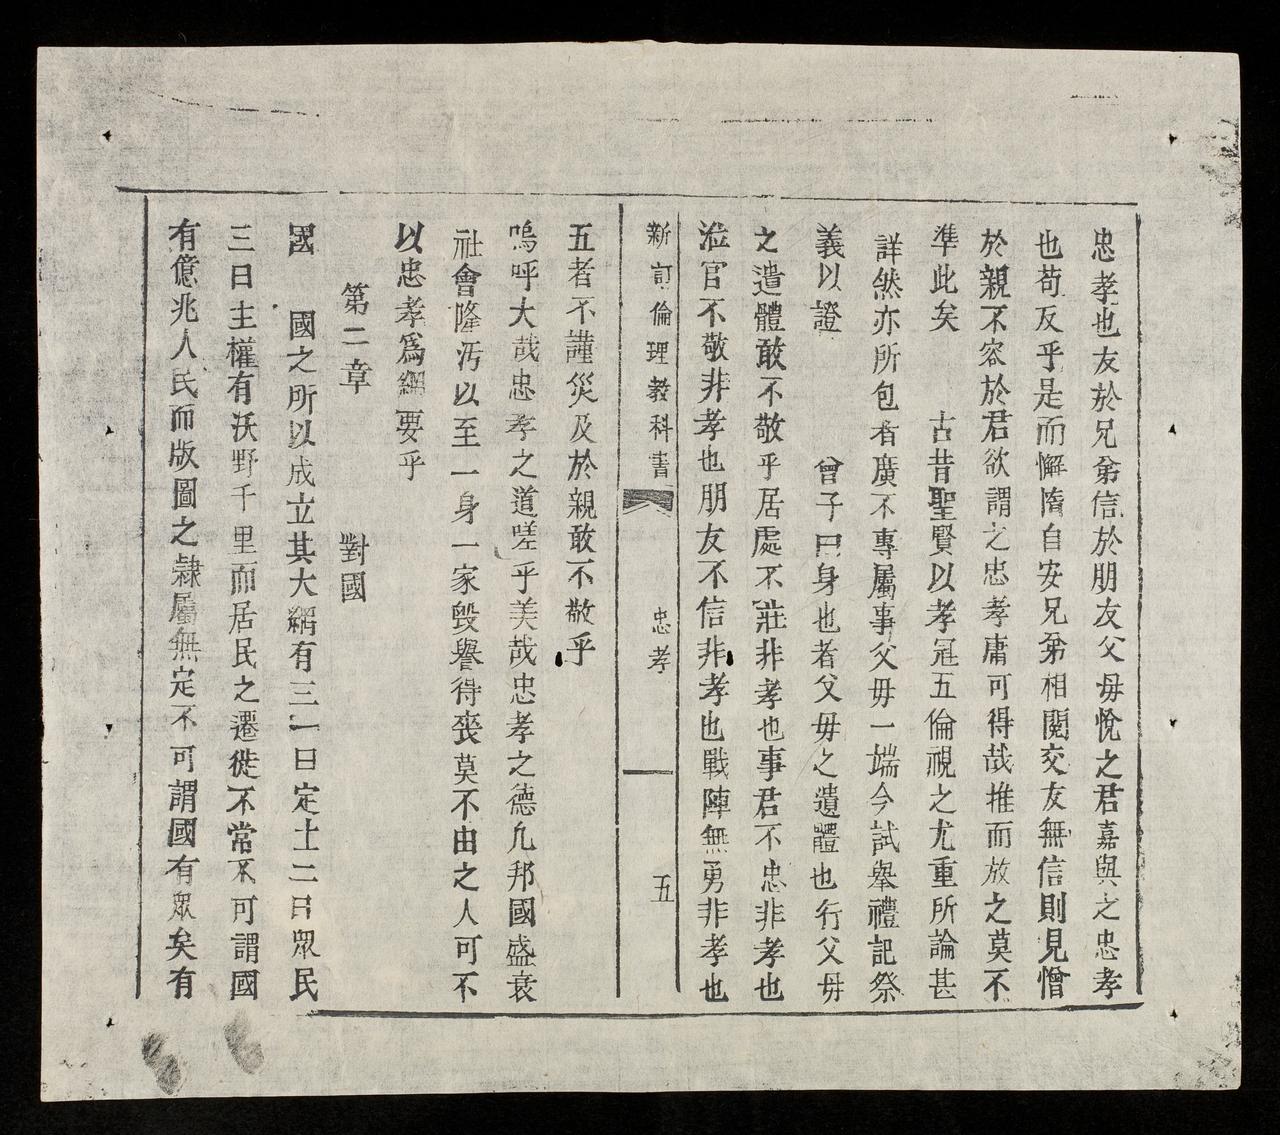 忠孝也友於兄弟信於朋友父毋悅之君嘉與之忠孝
也苟反乎是而懈惰自安兄弟相鬩交友無信則見憎
於親不容於君欲謂之忠孝庸可得哉推而放之莫不
準此矣 古昔聖賢以孝冠五倫視之尤重所論甚
詳然亦所包者廣不專屬事父毋一端今試舉禮記祭
義以證 曾子曰身也者父毋之遺體也行父毋
之遺體敢不敬乎居處不莊非孝也事君不忠非孝也
涖官不敬非孝也朋友不信非孝也戰陣無勇非孝也
新訂倫理教科書 忠孝 五
五者不謹災及於親敢不敬乎
嗚呼大哉忠孝之道嗟乎美哉忠孝之德凢邦國盛衰
社會隆汚以至一身一家毀譽得喪莫不由之人可不
以忠孝爲綱要乎
第二章 對國
國 國之所以成立其大綱有三一曰定土二曰眾民
三曰主權有沃野千里而居民之遷徙不常不可謂國
有億兆人民而版圖之隷屬無定不可謂國有眾矣有